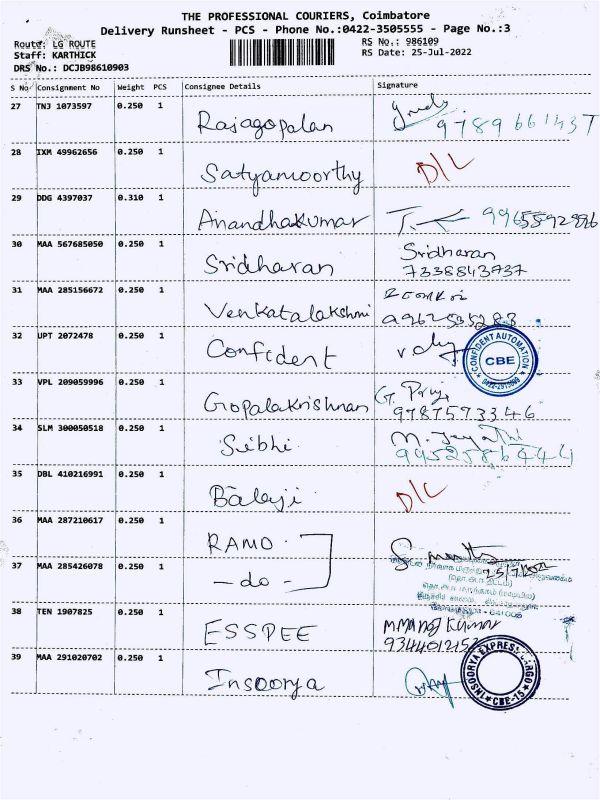 THE PROFESSIONAL COURIERS, Coimbatore
Delivery Runsheet - PCS - Phone No.:0422-3505555 - Page No.:3
Route: LG ROUTE
RS No.: 986109
Staff: KARTHICK
RS Date: 25-Jul-2022
DRS No.: DCJB98610903
S No Consignment No Weight PCS Consignee Details Signature
27 TNJ 1073597 0.250 1 Rajagopalan
28 IXM 49962656 0.250 1 Satyamoorthy D/L
29 DDG 4397037 0.310 1 Anandhakumar
30 MAA 567685050 0.250 1 Sridharan Sridharan
7338843737
31 MAA 285156672 0.250 1 Venkatalakshmi
32 UPT 2072478 0.250 1 Confident
CONFIDENT AUTOMATION
CBE
33 VPL 209059996 0.250 1 Gopalakrishnan G. Priya
9787573346
34 SLM 300050518 0.250 1 Sibhi
9952586444
35 DBL 410216991 0.250 1 Balaji D/L
36 MAA 287210617 0.250 1 RAMO
37 MAA 285426078 0.250 1 - do -
25/7/2022
38 TEN 1907825 0.250 1 ESSPEE M MANOJ KUMAR
39 MAA 291020702 0.250 1 Insoorya
INSOORYA EXPRESS CARGO
CBE-15